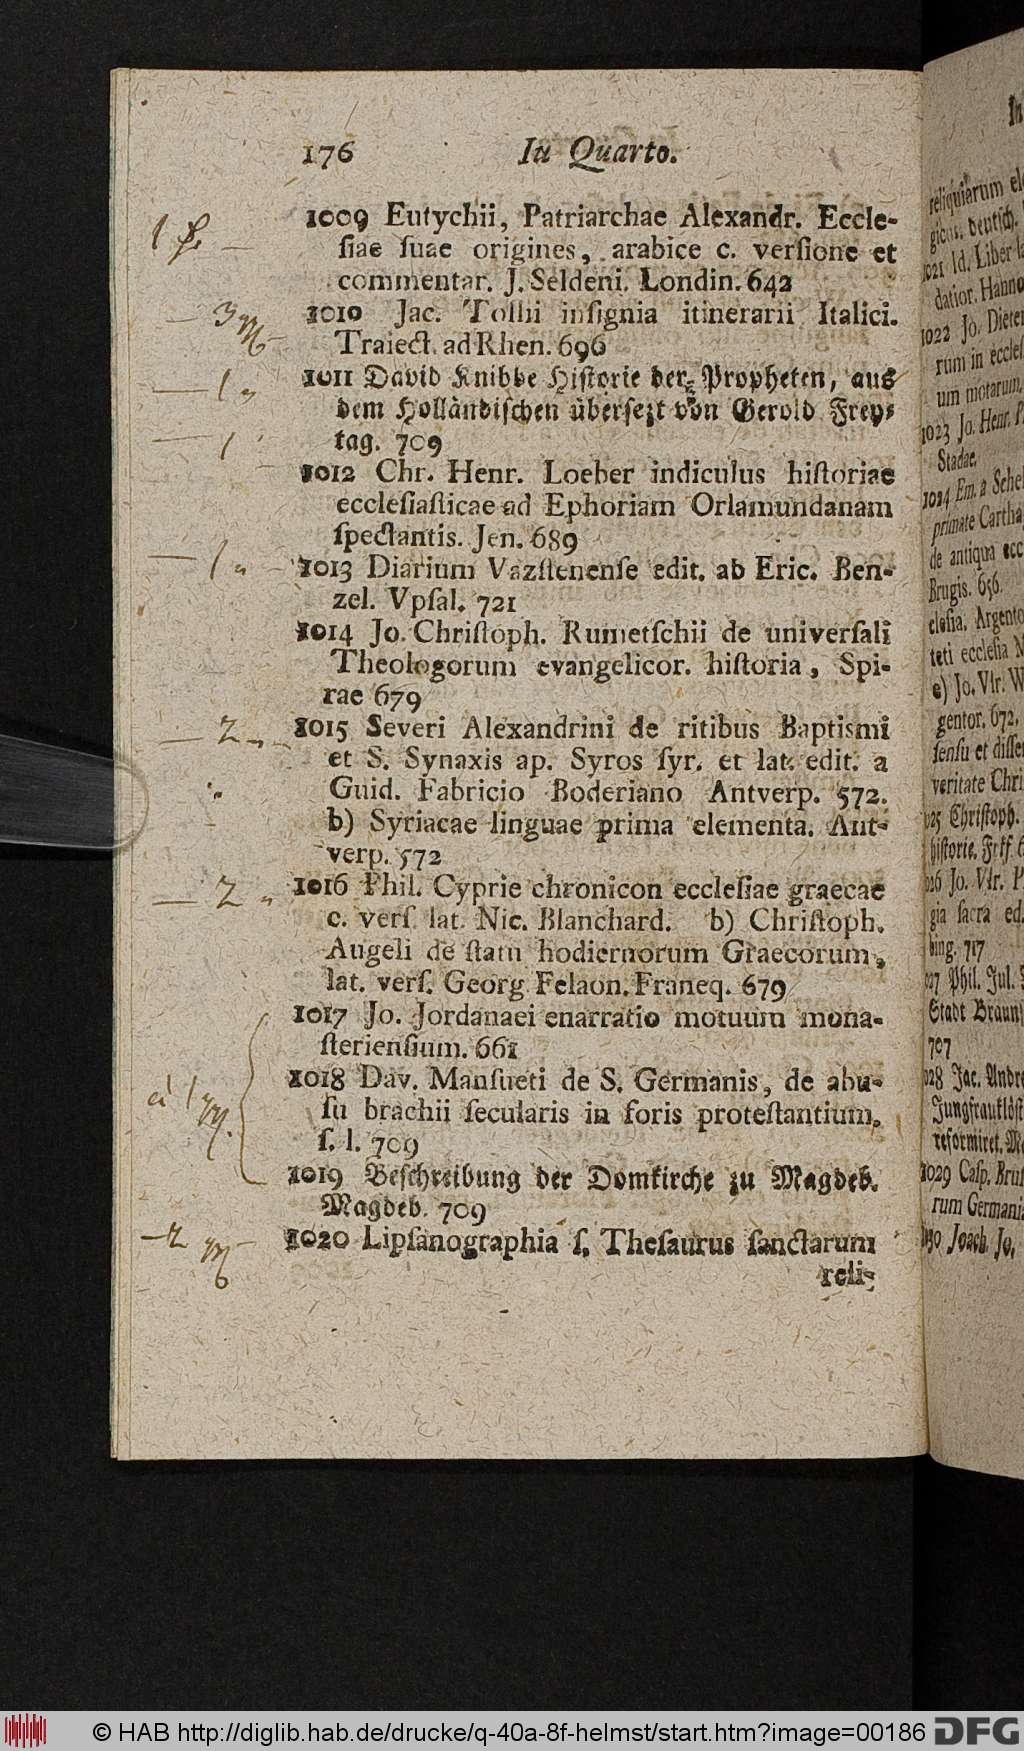 176 In Quarto.
1009 Eutychii, Patriarchae Alexandr. Eccle-
siae suae origines, arabice c. versione et
commentar. J. Seldeni. Londin. 642
1010 Jac. Tollii insignia itinerarii Italici.
Traiect. ad Rhen. 696
1011 David Knibbe Historie der Propheten, aus
dem Holländischen übersezt von Gerold Frey-
tag. 709
1012 Chr. Henr. Loeber indiculus historiae
ecclesiasticae ad Ephoriam Orlamundanam
spectantis. Jen. 689
1013 Diarium Vazstenense edit. ab Eric. Ben-
zel. Vpsal. 721
1014 Jo. Christoph. Rumetschii de universali
Theologorum evangelicor. historia, Spi-
rae 679
1015 Severi Alexandrini de ritibus Baptismi
et S. Synaxis ap. Syros syr. et lat. edit. a
Guid. Fabricio Boderiano Antverp. 572.
b) Syriacae linguae prima elementa. Ant-
verp. 572
1016 Phil. Cyprie chronicon ecclesiae graecae
c. vers. lat. Nic. Blanchard. b) Christoph.
Augeli de statu hodiernorum Graecorum,
lat. vers. Georg Felaon. Franeq. 679
1017 Jo. Jordanaei enarratio motuum mona-
steriensium. 661
1018 Dav. Mansueti de S. Germanis, de abu-
su brachii secularis in foris protestantium.
s. l. 709
1019 Beschreibung der Domkirche zu Magdeb.
Magdeb. 709
1020 Lipsanographia s. Thesaurus sanctarum
reli-
1
3
1
1
1
2
2
à 1
2
reliquiarum
gicus. deutsch.
1021 Id. Liber
datior. Hanno
1022 Jo. Dieter
rum in eccles
um motarum,
1023 Jo. Henr.
Stadae.
1024 Em. a Schel
primate Cartha
de antiqua ecc
Brugis. 656.
clesia. Argento
teti ecclesia
e) Jo. Vlr. W
gentor. 672.
sensu et disse
veritate Chri
025 Christoph.
historie. Frff.
026 Jo. Vlr. P
gia sacra ed.
bing. 717
027 Phil. Jul.
Stadt Braun
707
028 Jac. Andr
Jungfrauklöst
reformiret.
1029 Casp. Brus
rum Germania
1030 Joach. Jo.
© HAB http://diglib.hab.de/drucke/q-40a-8f-helmst/start.htm?image=00186
DFG